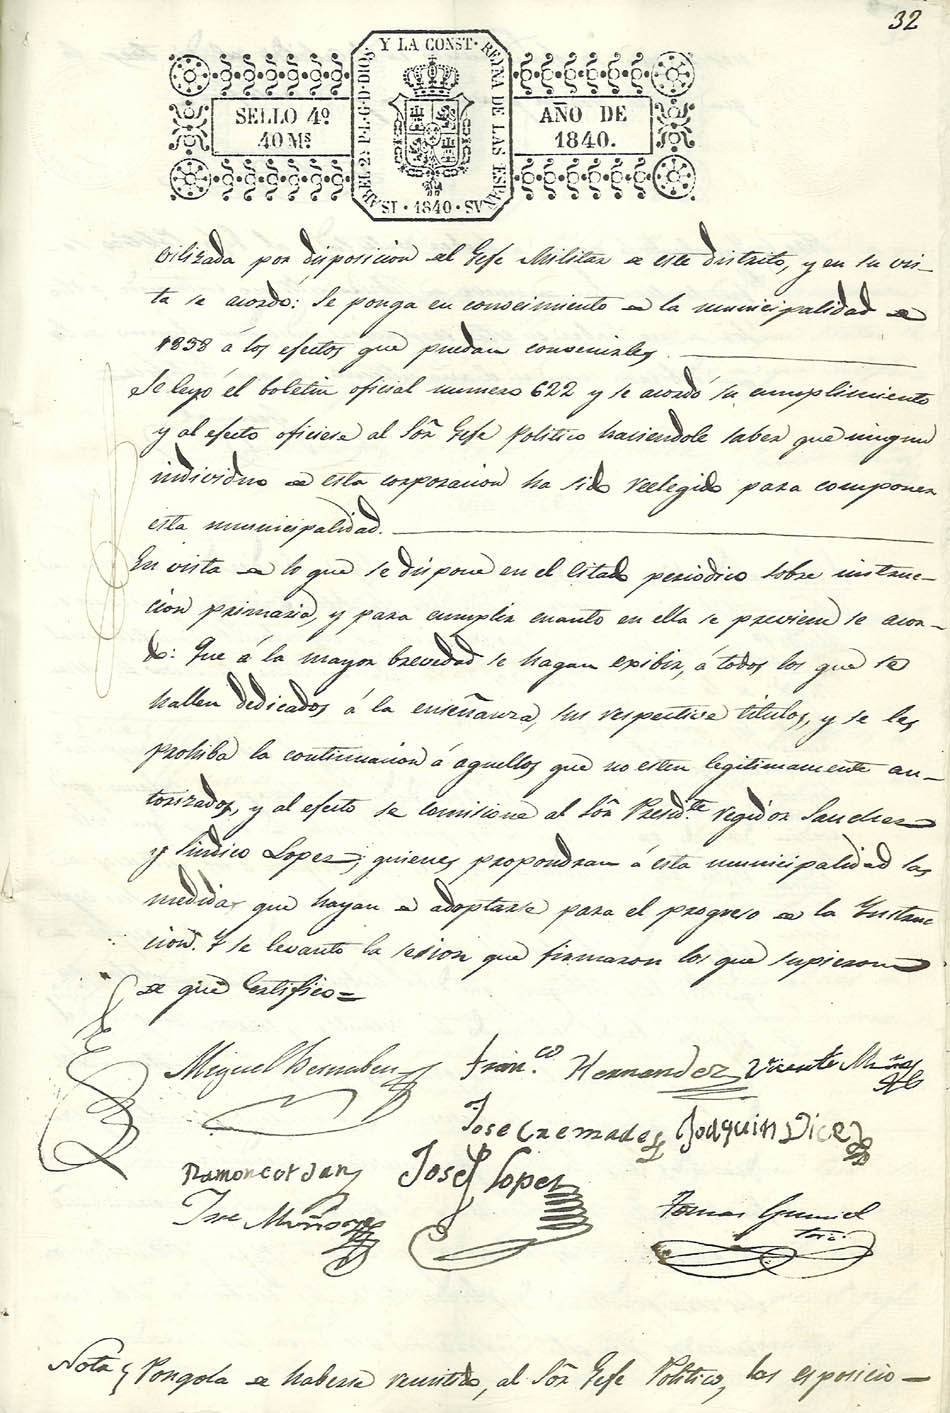 32
Y LA CONST. REYNA DE LAS ESPAÑAS · 1840 · ISABEL 2ª P. L. G. D. DIOS
SELLO 4º
40 Mˢ
AÑO DE
1840.
vilizada por disposicion del Gefe Militar de este distrito, y en su vis-
ta se acordó: Se ponga en conocimiento de la municipalidad de
1838 á los efectos que puedan convenirles.
Se leyó el boletin oficial numero 622 y se acordó su cumplimiento
y al efecto oficiese al Sõr Gefe Politico haciendole saber que ningun
individuo de esta corporacion ha sido reelegido para componer
esta municipalidad.
En vista de lo que se dispone en el citado periodico sobre instruc-
cion primaria, y para cumplir cuanto en ella se previene se acor-
dó: Que á la mayor brevedad se hagan exibir, á todos los que se
hallen dedicados á la enseñanza, sus respective titulos, y se les
prohiba la continuacion á aquellos que no esten legitimamente au-
torizados, y al efecto se comisione al Sõr Presid.te regidor Sanchez
y Sindico Lopez; quienes propondran á esta municipalidad las
medidas que hayan de adoptarse para el progreso de la Instruc
cion. Y se levantó la sesion que firmaron los que supieron
de que Certifico=
Miguel Bernabeu Fran.co Hernandez Vicente Muñoz
Jose Cremades Joaquin Dicez
Ramon cordan Josef Lopez
Jose Muñoz Tomas
Nota Pongola de haberse remitido, al Sõr Gefe Politico, las esposicio-